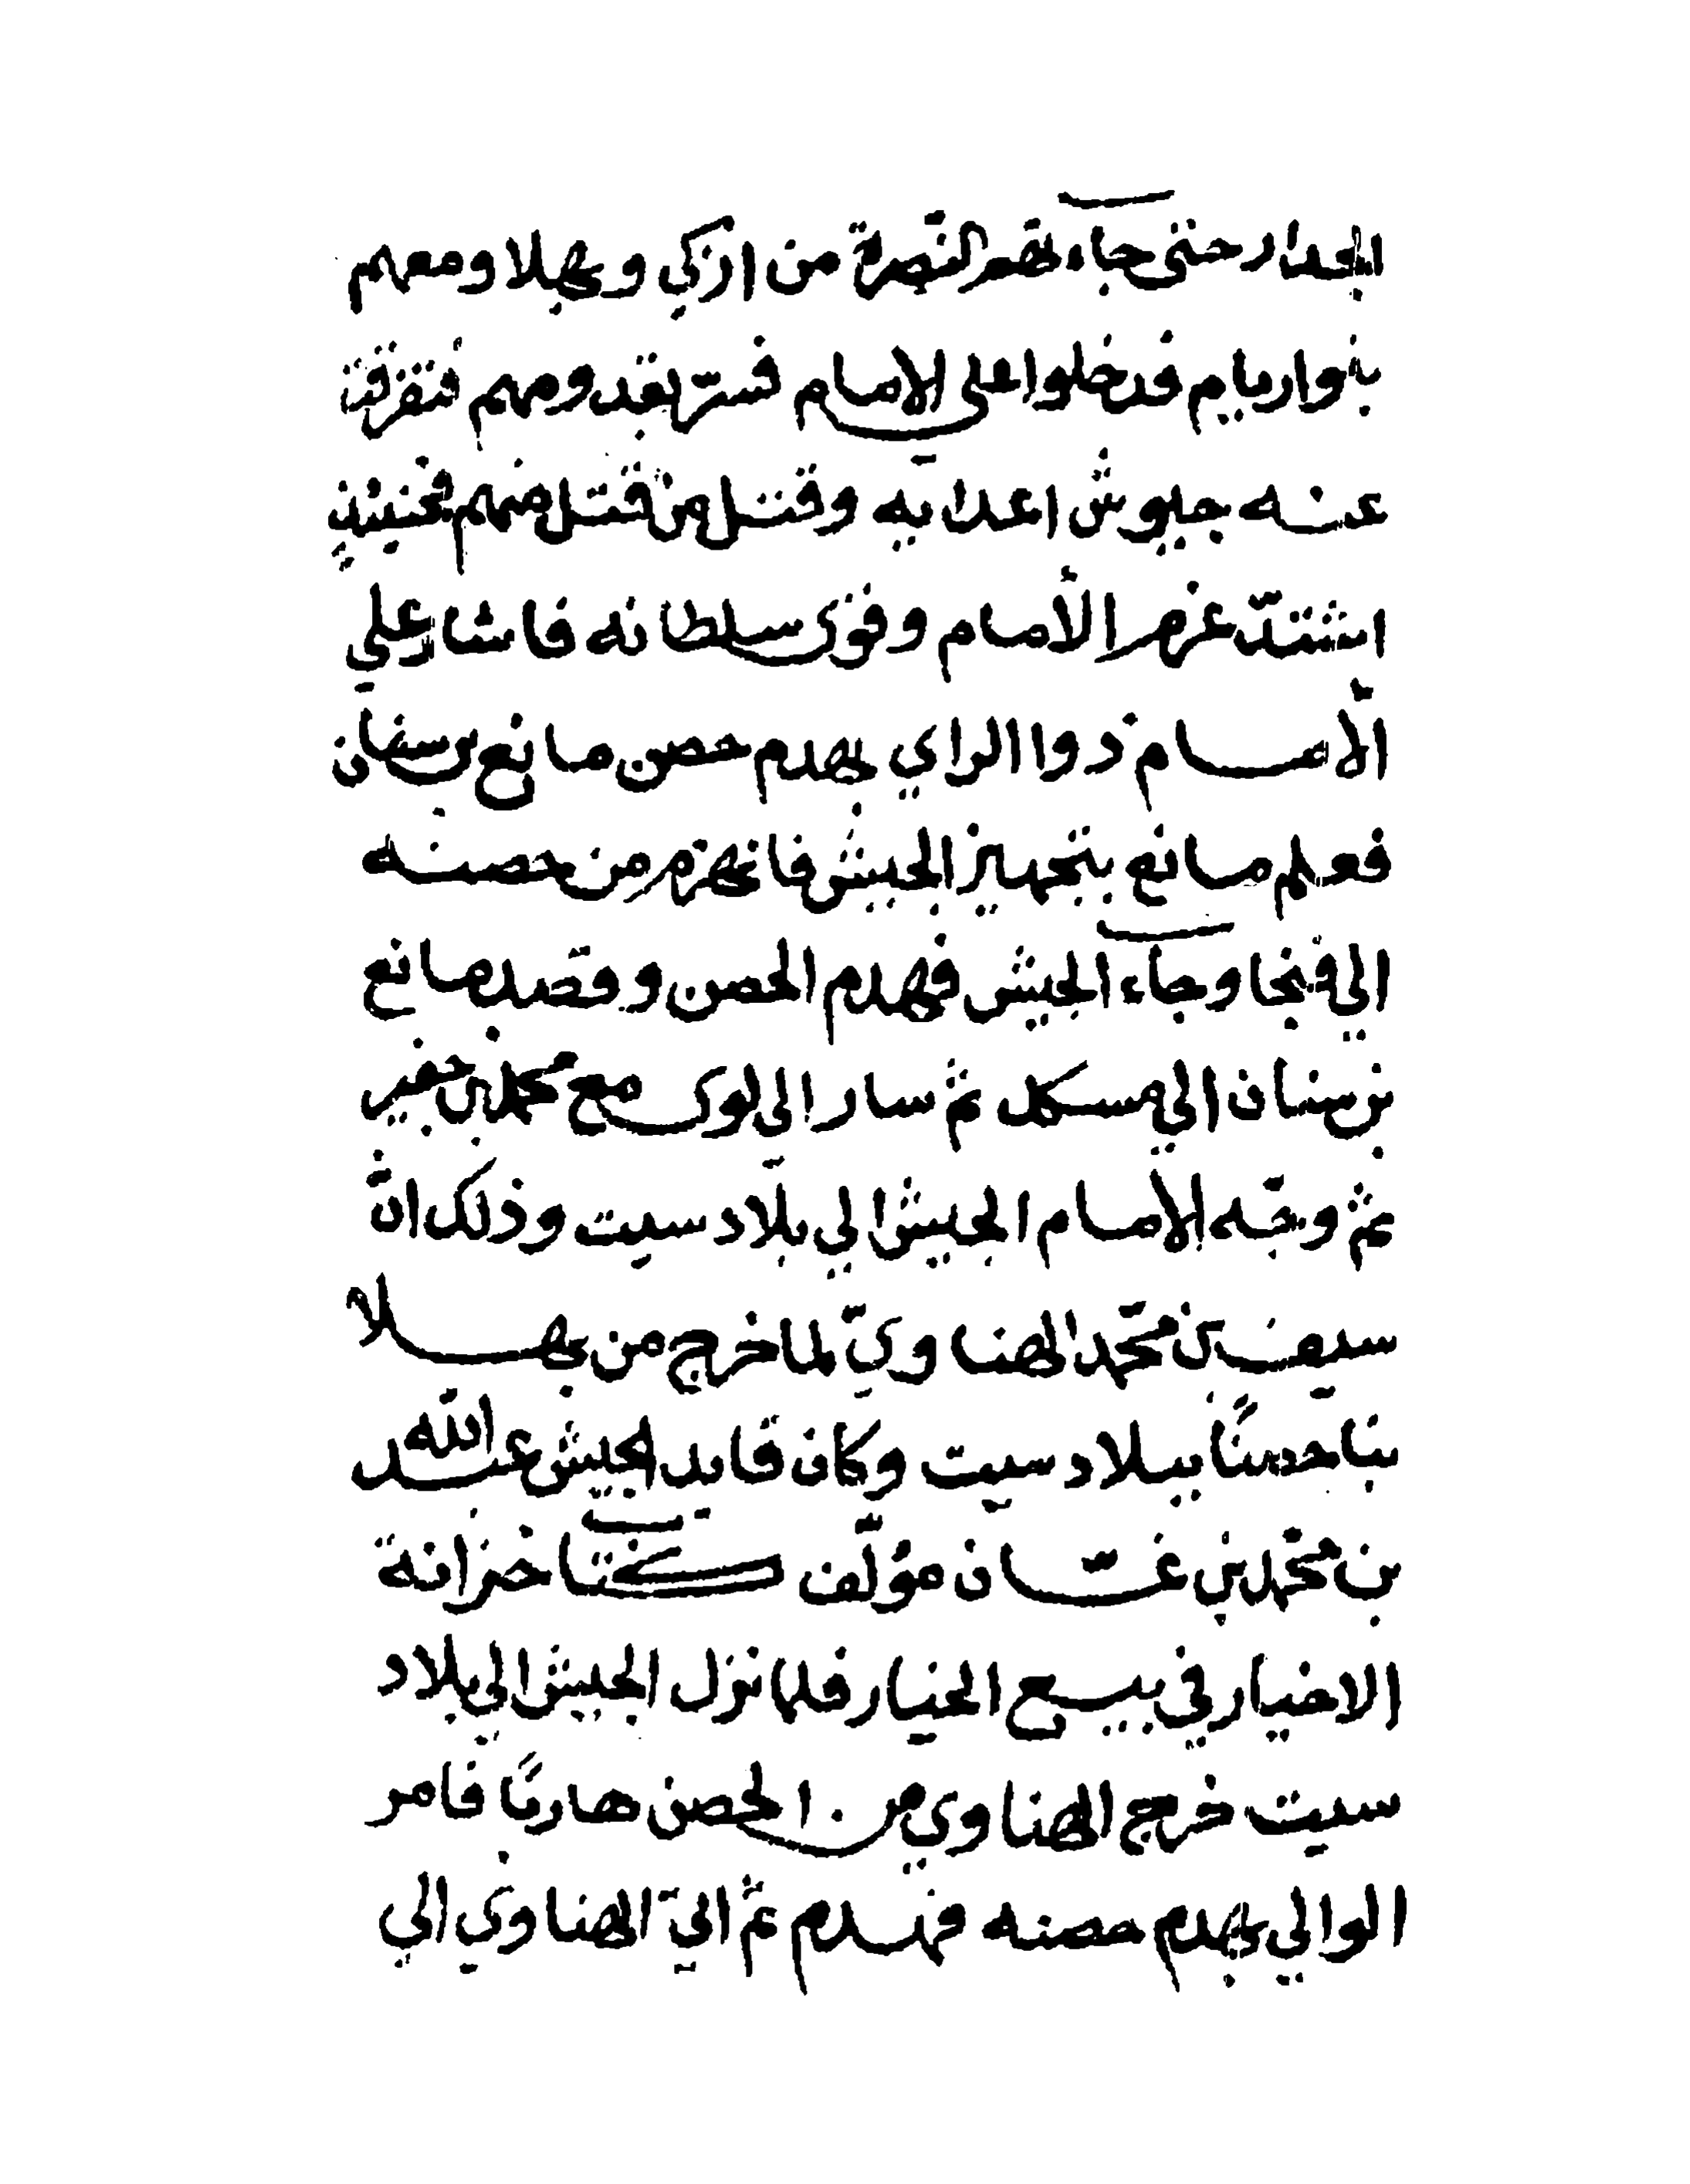 الجدار حتى جآءتهم النصرة من ازكي وبهلا ومعهم
بنوا ريام فدخلوا على الامام فسّر بقدومهم فتفرقت
عنه جيوش اعدايه وقتل من قتل منهم فحينيذٍ
اشتدّ عزم الأمام وقوّى سلطانه فاشار علي
الأمام ذوا الراي بهدم حصن مانع بن سنان
فعلم مانع بتجهيز الجيش فانهزم من حصنه
الي فنجا وجآء الجيش فهدم الحصن وقصد مانع
بن سنان الي مسكد ثم سار الى لوى مع محمد بن جفير
ثم وجّه الامام الجيش الي بلاد سيت وذلك انّ
سيف بن محمّد الهناويّ لما خرج من بهلا
بنا حصنًا ببلاد سيت وكان قايد الجيش عبد الله
بن محمّد بن غسّان مؤلّف كتاب خزانة
الاخيار في بيع الخيار فلما نزل الجيش الي بلاد
سيت خرج الهناوي من الحصن هاربًا فامر
الوالي بهدم حصنه فهدم ثم اتي الهناوي الي